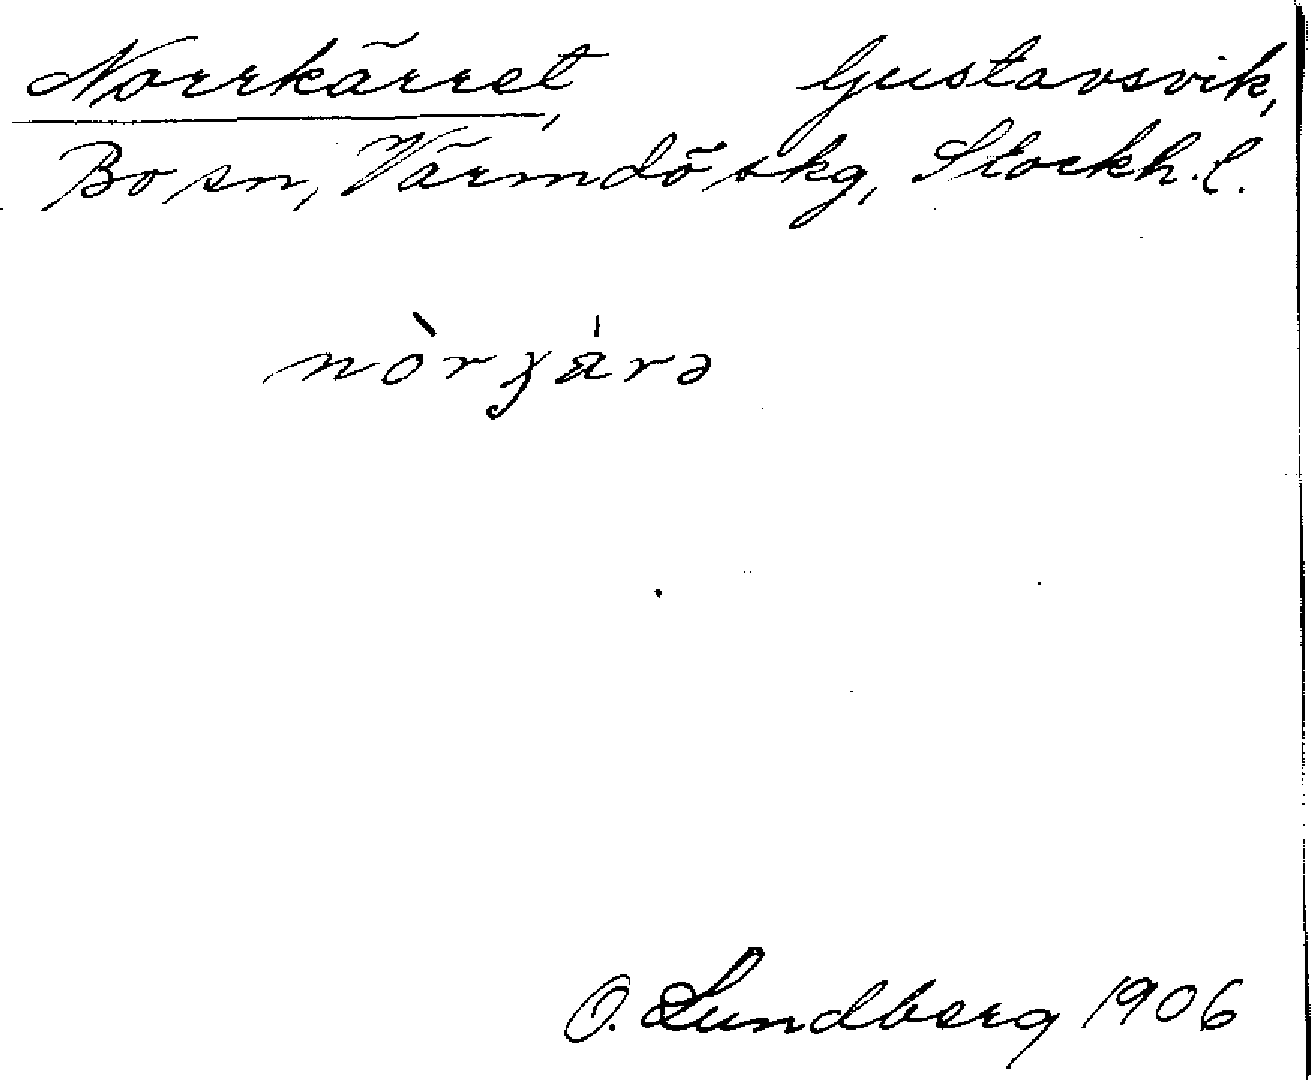 Norrkärret, Gustavsvik,
Bo sn, Värmdö skg, Stockh. l.
nòrʒárə
O. Lundberg 1906